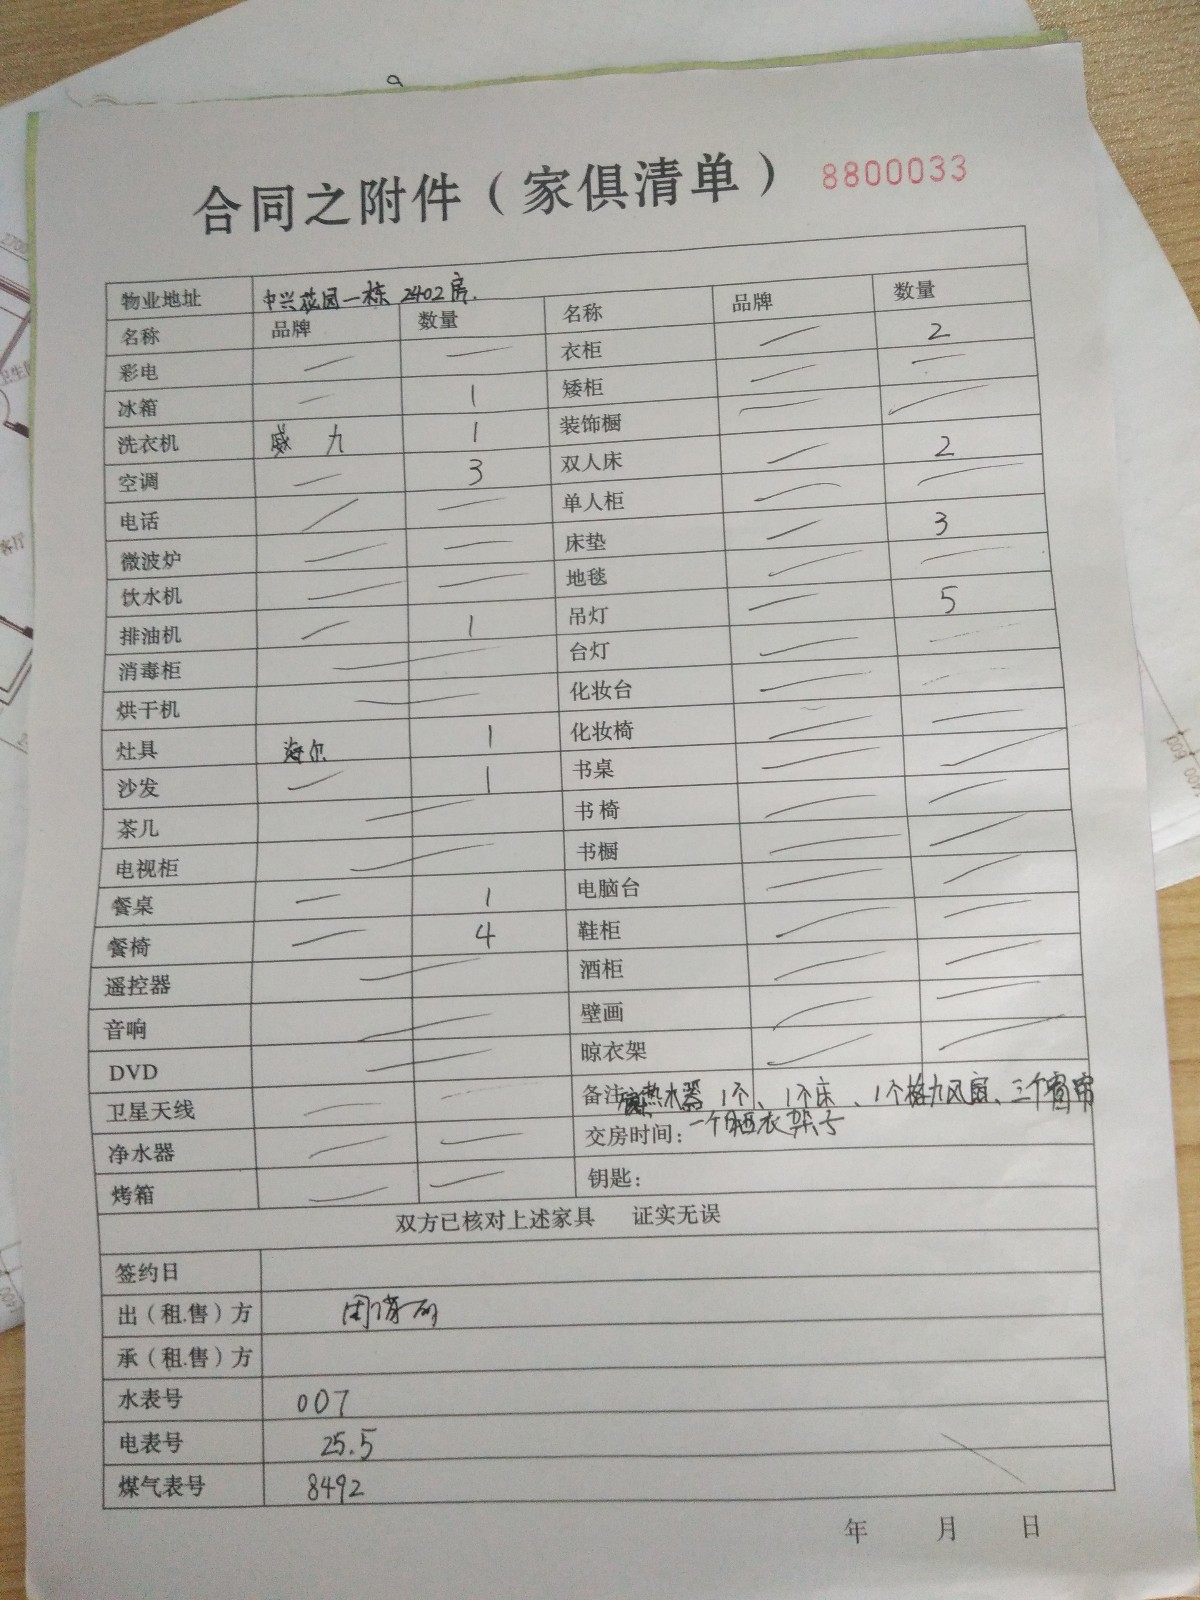 合同之附件（家俱清单） 8800033
物业地址 中兴花园一栋 2402房.
名称 品牌 数量 名称 品牌 数量
彩电 衣柜 2
冰箱 1 矮柜
洗衣机 威力 1 装饰橱
空调 3 双人床 2
电话 单人柜
微波炉 床垫 3
饮水机 地毯
排油机 1 吊灯 5
消毒柜 台灯
烘干机 化妆台
灶具 海尔 1 化妆椅
沙发 1 书桌
茶几 书椅
电视柜 书橱
餐桌 1 电脑台
餐椅 4 鞋柜
遥控器 酒柜
音响 壁画
DVD 晾衣架
卫星天线 备注 热水器 1个、1个床、1个格力风扇、三个窗帘
净水器 交房时间： 一个晒衣架子
烤箱 钥匙：
双方已核对上述家具 证实无误
签约日
出（租.售）方
承（租.售）方
水表号 007
电表号 25.5
煤气表号 8492
年 月 日